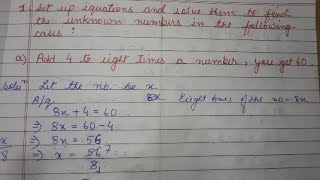 1. Set up equations and solve them to find
the unknown numbers in the following
cases :
a) Add 4 to eight times a number, you get 60.
Soluⁿ Let the no. be x
A/q 8x Eight times of the no = 8x
8x + 4 = 60
⇒ 8x = 60 - 4
⇒ 8x = 56
x/8 ⇒ x = 56 7
8 1